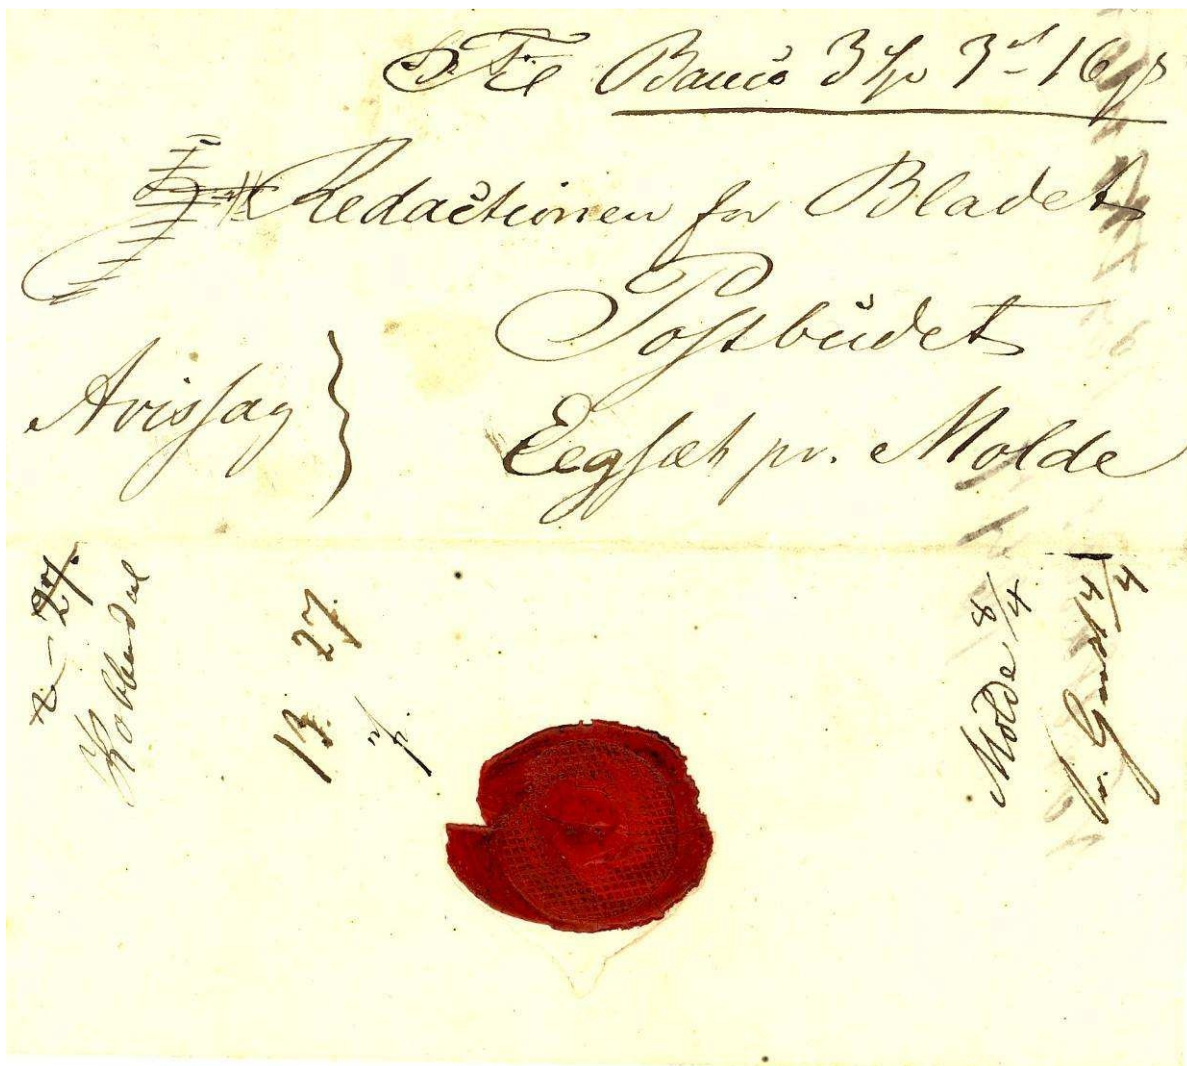 Til
Banco 3 Sp 3 16
Redactionen for Bladet
Postbudet
Avissag
Eegsæt pr. Molde
27.
Kobberdal
13. 27.
Molde 8/4